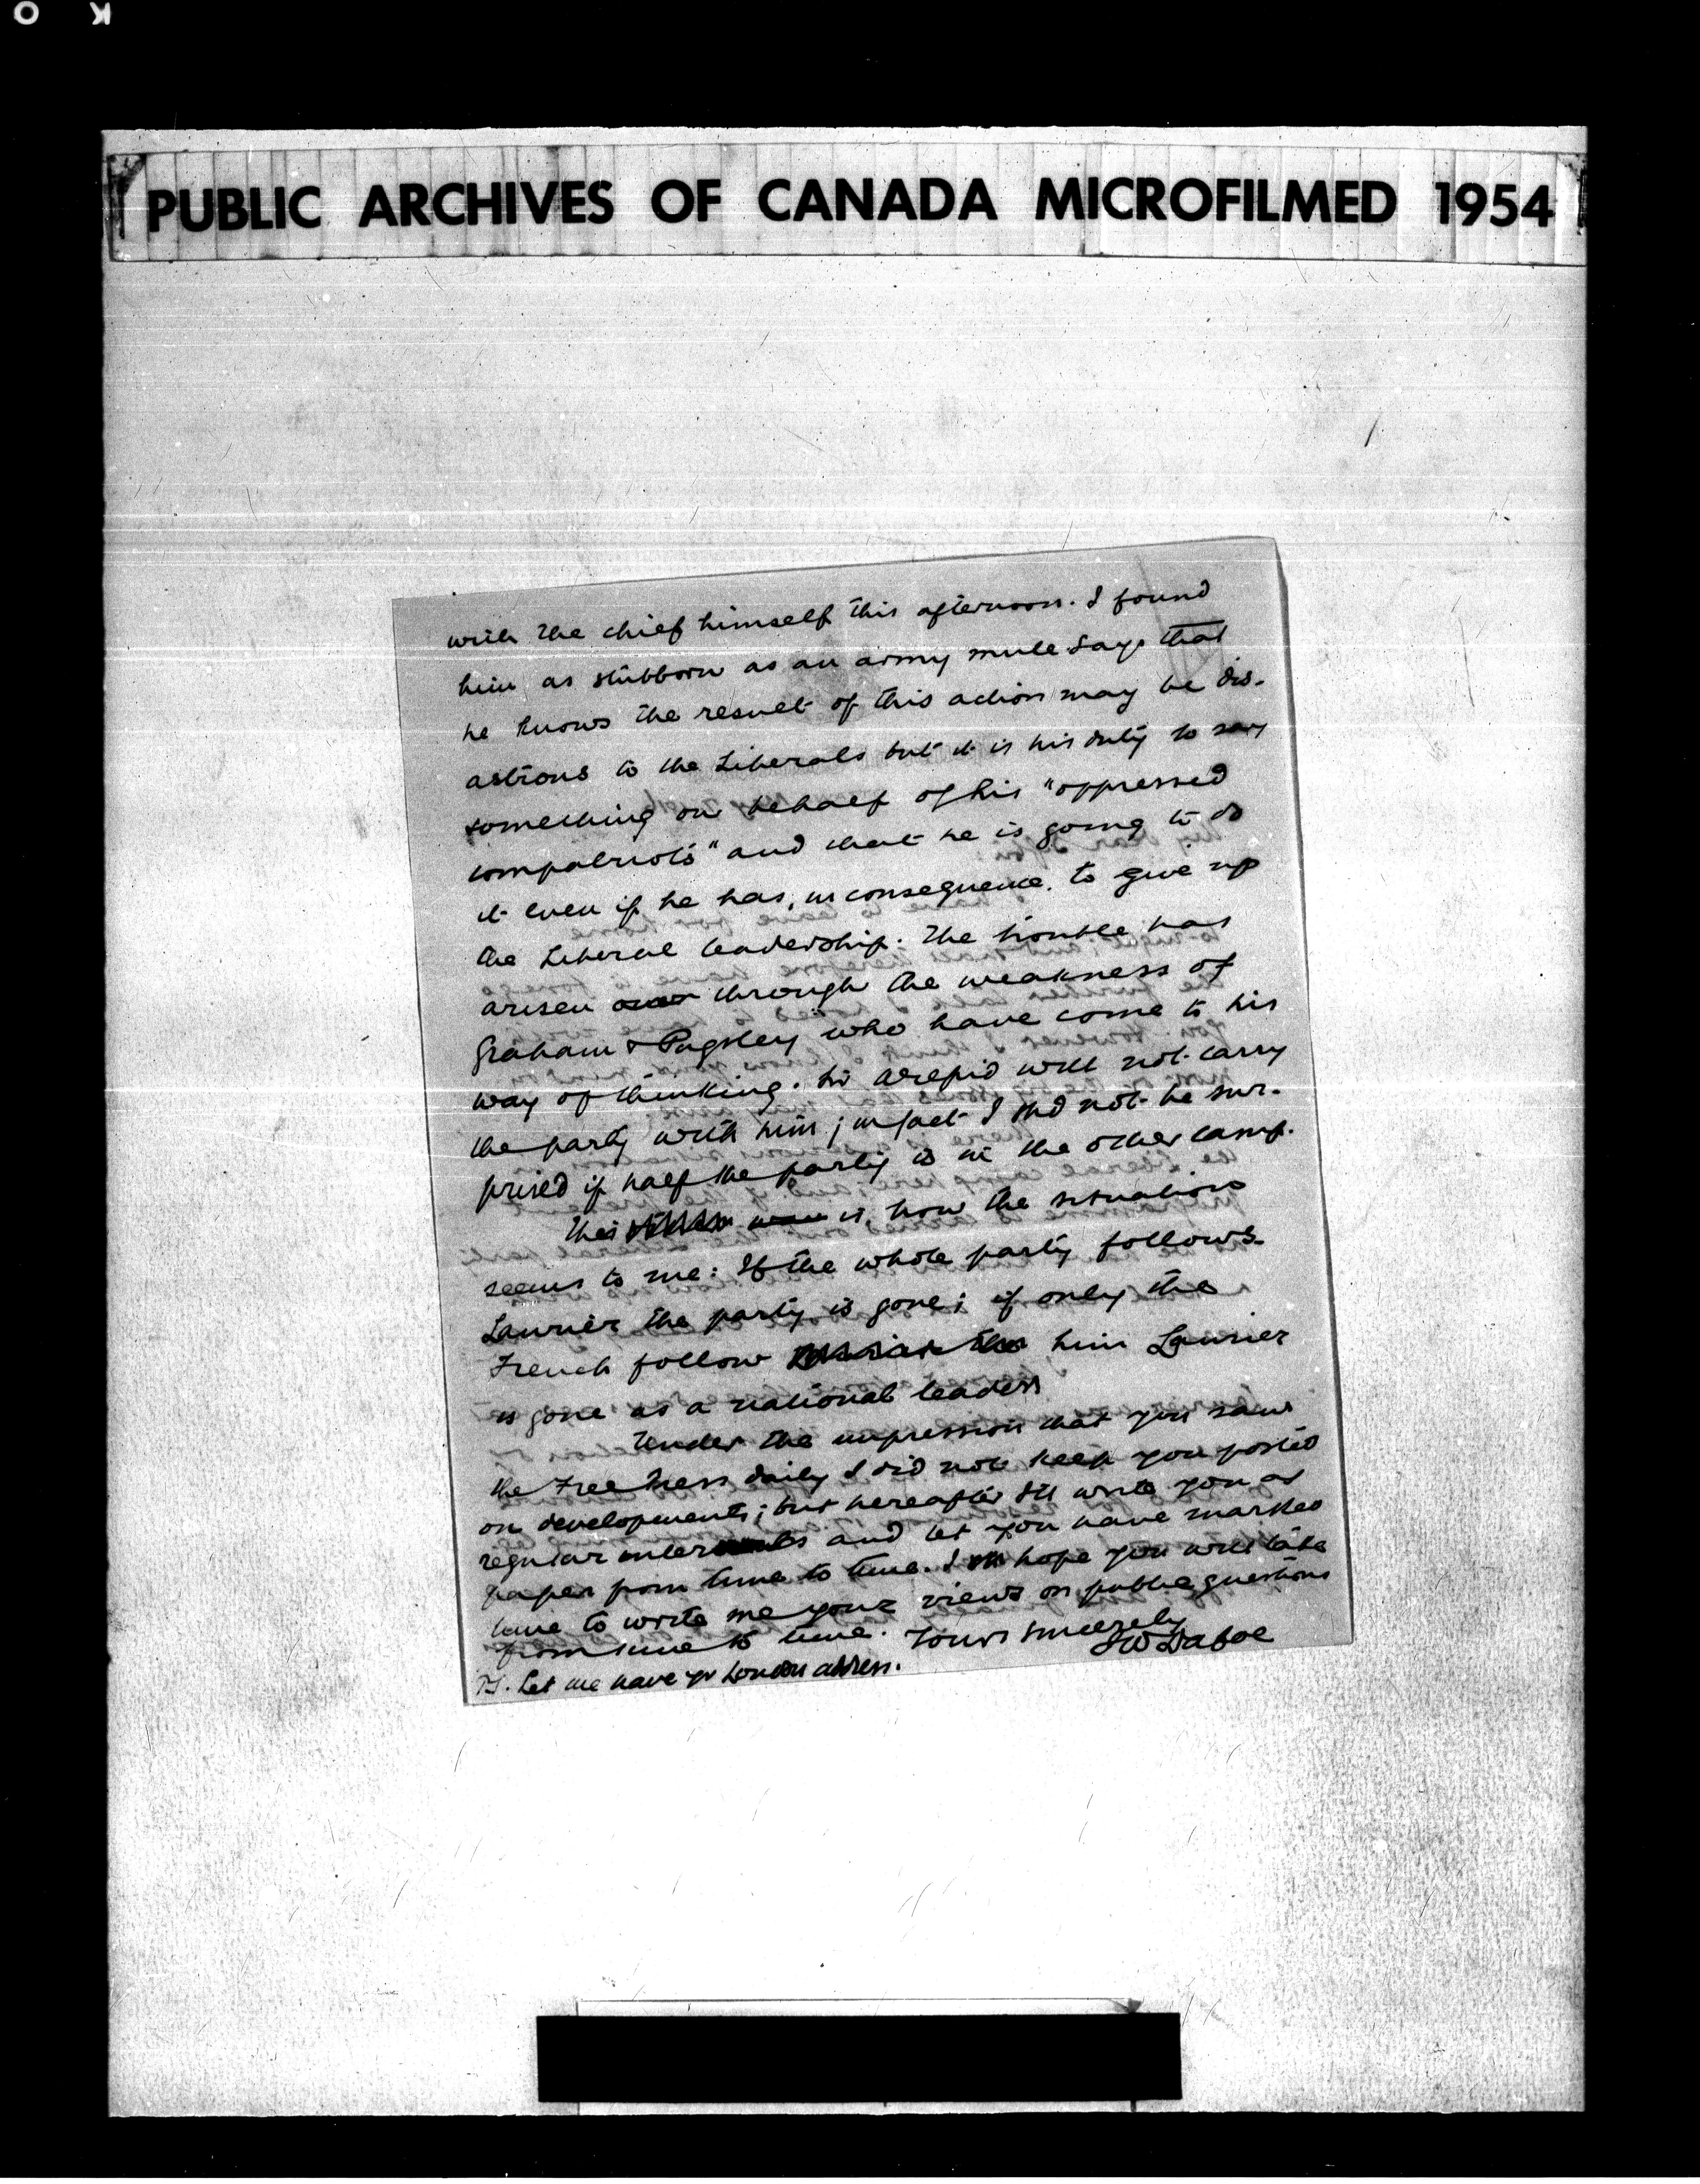 PUBLIC ARCHIVES OF CANADA MICROFILMED 1954
with the chief himself this afternoon. I found
him as stubborn as an army mule says that
he knows the result of this action may be dis-
astrous to the Liberals but it is his duty to say
something on behalf of his "oppressed
compatriots" and that he is going to do
it even if he has, in consequence, to give up
the Liberal leadership. The trouble has
arisen through the weakness of
Graham & Pugsley who have come to his
way of thinking. will not carry
the party with him; in fact I shd not be sur-
prised if half the party is in the other camp.
This is, how the situation
seems to me: If the whole party follows
Laurier the party is gone; if only the
French follow him Laurier
is gone as a national leader
Under the impression that you saw
the Free Press daily I did not keep you posted
on developments; but hereafter I'll write you at
regular intervals and let you have marked
paper from time to time. I hope you will take
time to write me your views on public questions
from time to time. Yours sincerely
JW Dafoe
PS. Let me have yr London address.